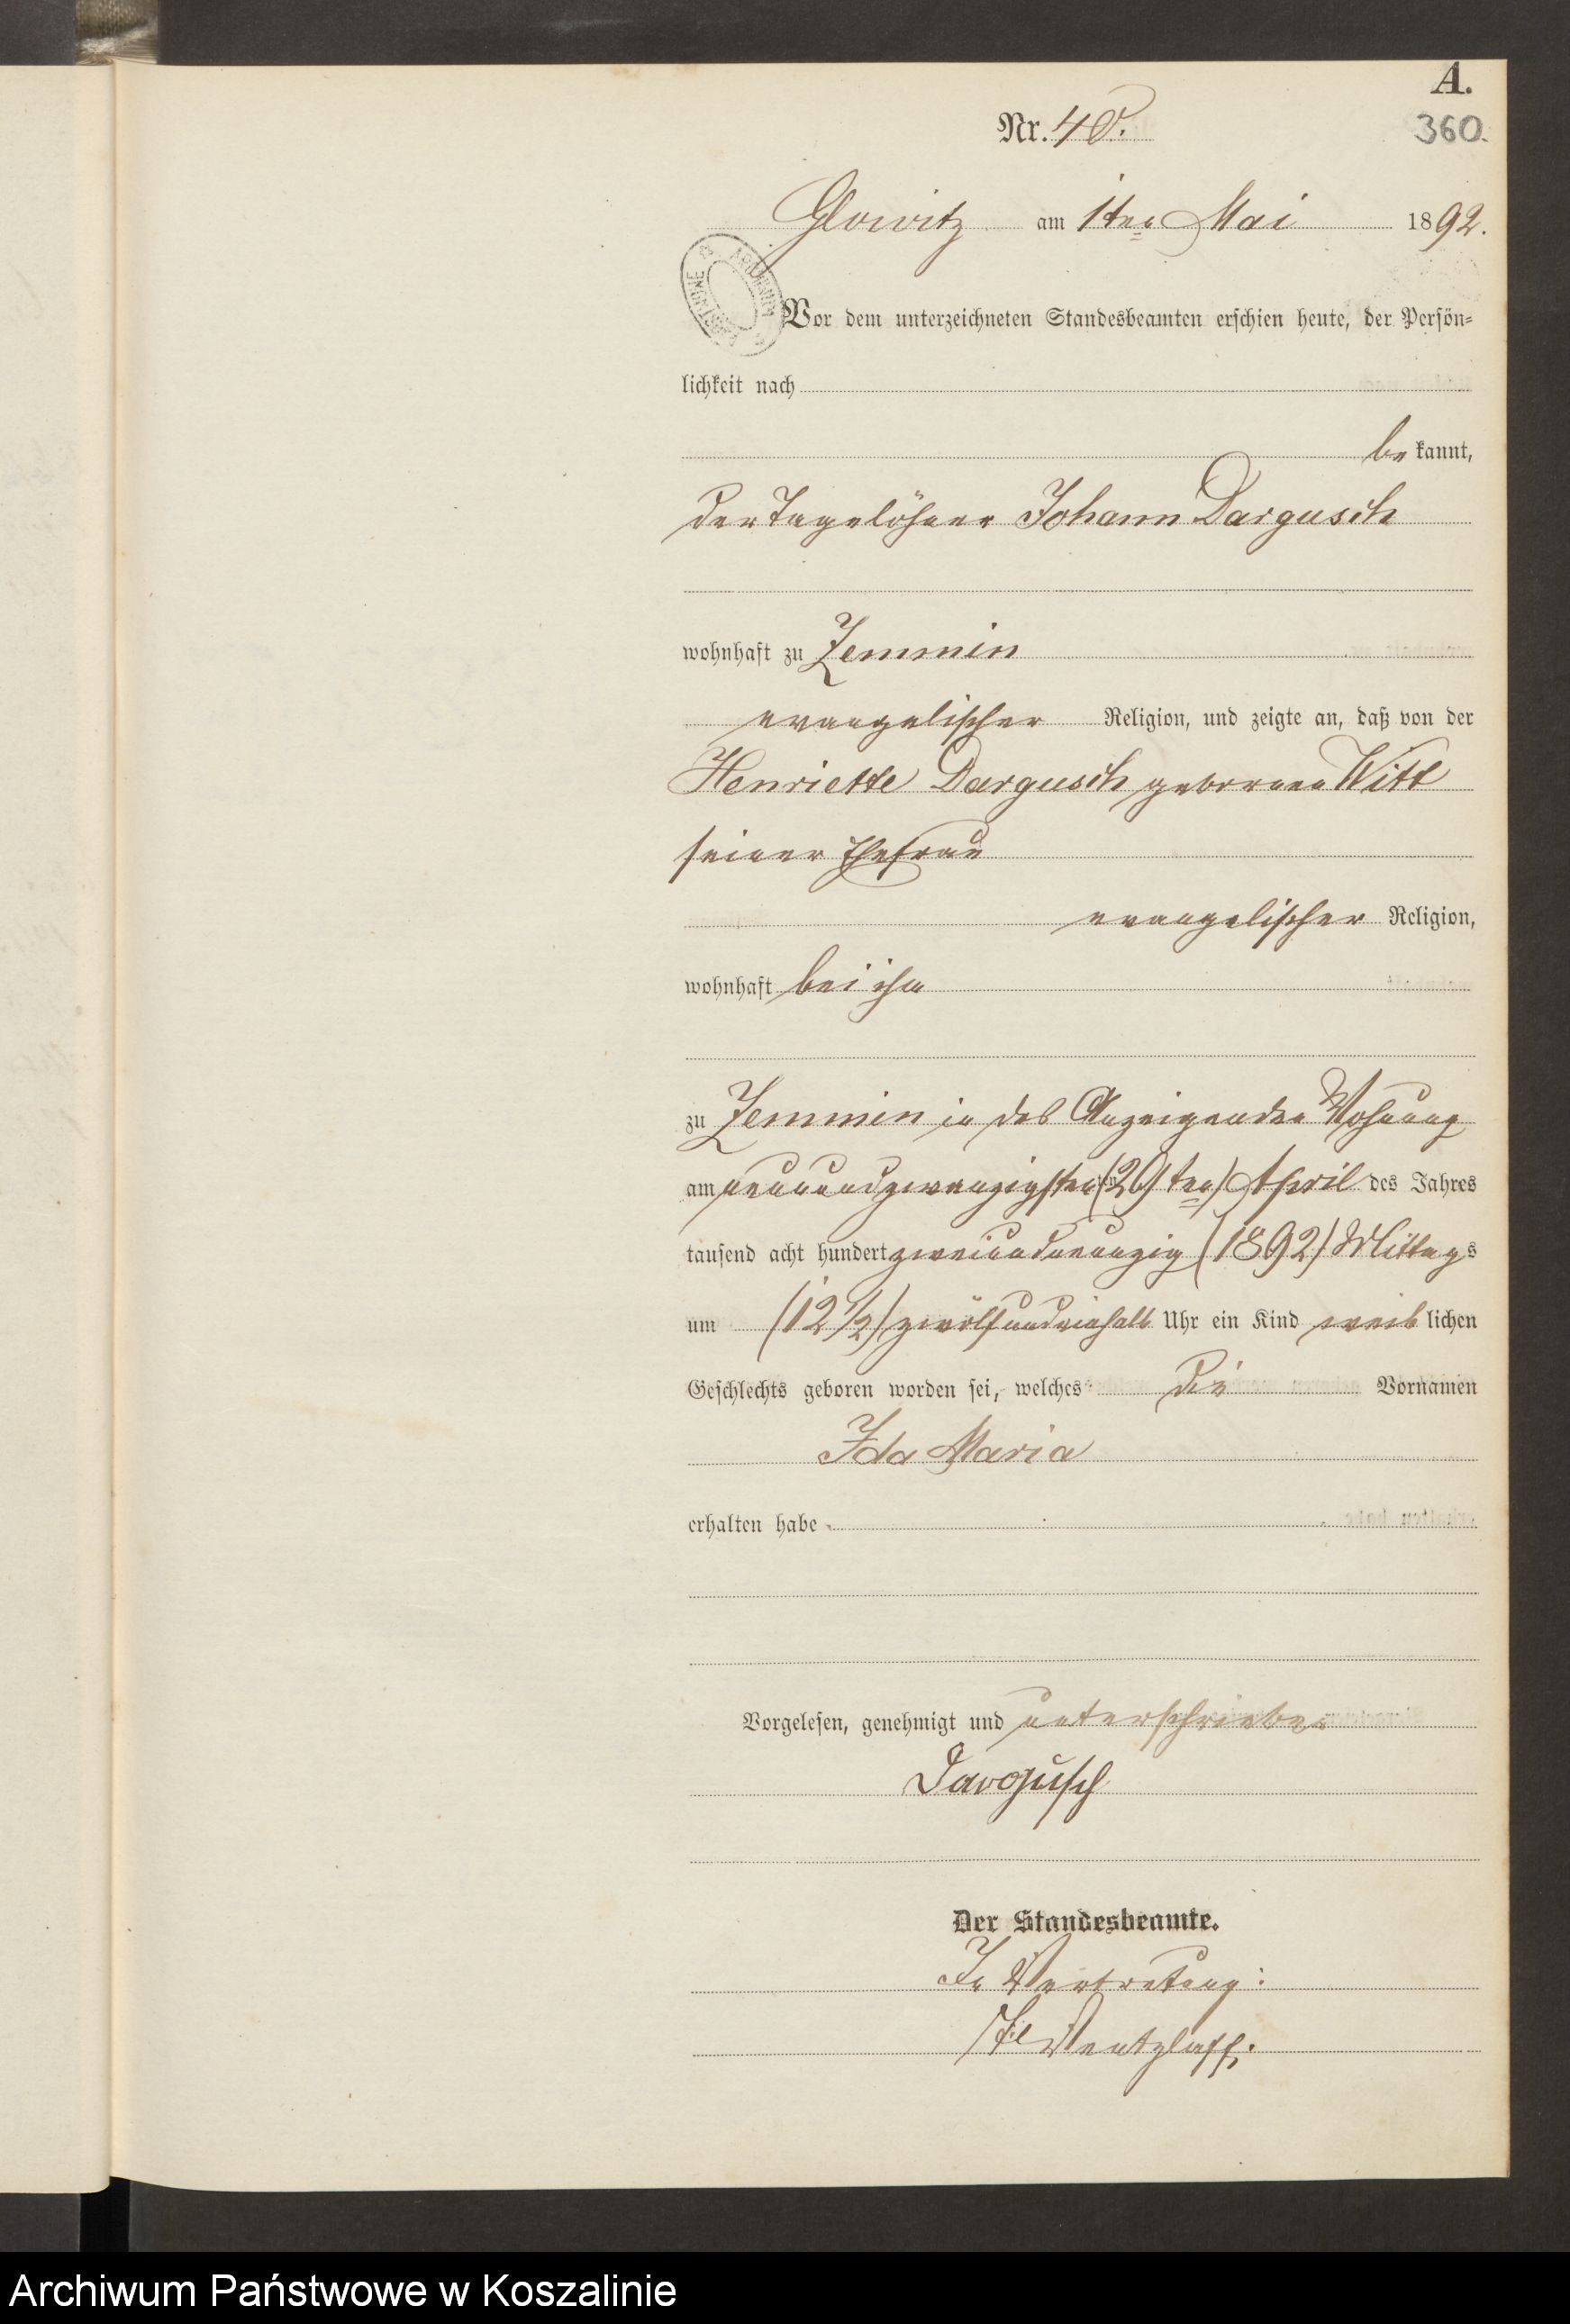 A.
Nr. 40.
360.
Glowitz am 1ten Mai 1892.
Vor dem unterzeichneten Standesbeamten erschien heute, der Persön-
lichkeit nach
be kannt,
der Tagelöhner Johann Dargusch
wohnhaft zu Zemmin
evangelischer Religion, und zeigte an, daß von der
Henriette Dargusch geborenen Witt
seiner Ehefrau
evangelischer Religion,
wohnhaft bei ihm
zu Zemmin in des Anzeigenden Wohnung
am neunundzwanzigsten (29ten) April des Jahres
tausend acht hundert zweiundneunzig (1892) Mittags
um (12 1/2) zwölfundeinhalb Uhr ein Kind weib lichen
Geschlechts geboren worden sei, welches die Vornamen
Ida Maria
erhalten habe
Vorgelesen, genehmigt und unterschrieben
Dargusch
Der Standesbeamte.
In Vertretung:
Wentzlaff.
Archiwum Państwowe w Koszalinie